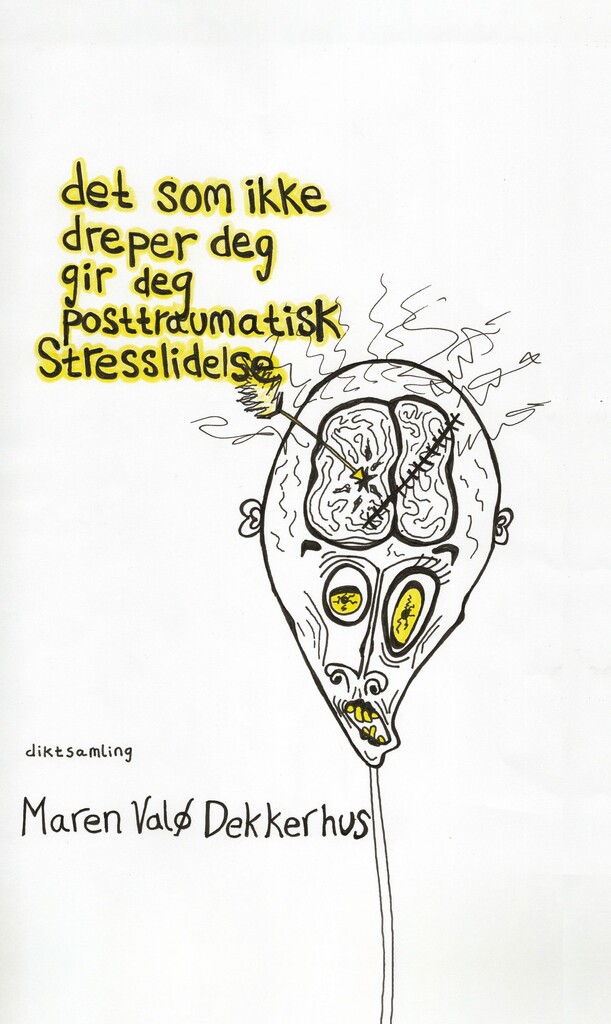 det som ikke
dreper deg
gir deg
posttraumatisk
Stresslidelse
diktsamling
Maren Valø Dekkerhus